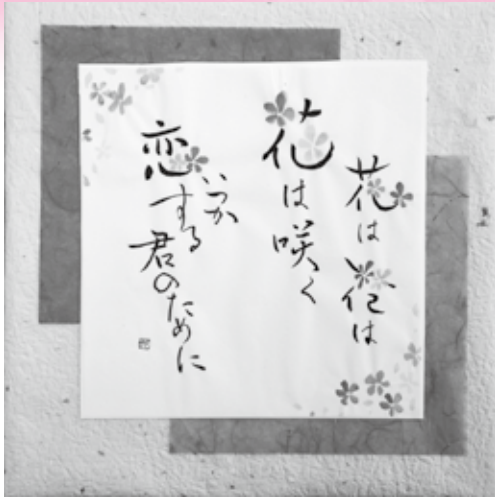 花は花は
花は咲く
いつか
恋する
君のために